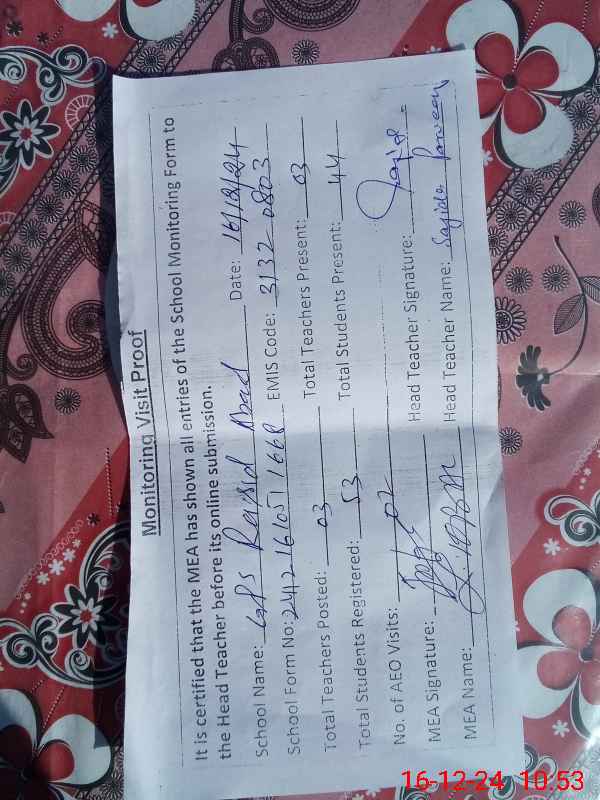 Monitoring Visit Proof
It is certified that the MEA has shown all entries of the School Monitoring Form to
the Head Teacher before its online submission.
School Name: GPS Rashid Abad Date: 16/12/24
School Form No: 2412161051 1668 EMIS Code: 3132 0803
Total Teachers Posted: 03 Total Teachers Present: 03
Total Students Registered: 53 Total Students Present: 44
No. of AEO Visits: 02
MEA Signature: Head Teacher Signature: Sajida
MEA Name: Head Teacher Name: Sajida Parveen
16-12-24 10:53